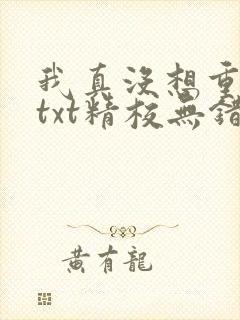 我真没想重
txt精校無錯
黄有龍